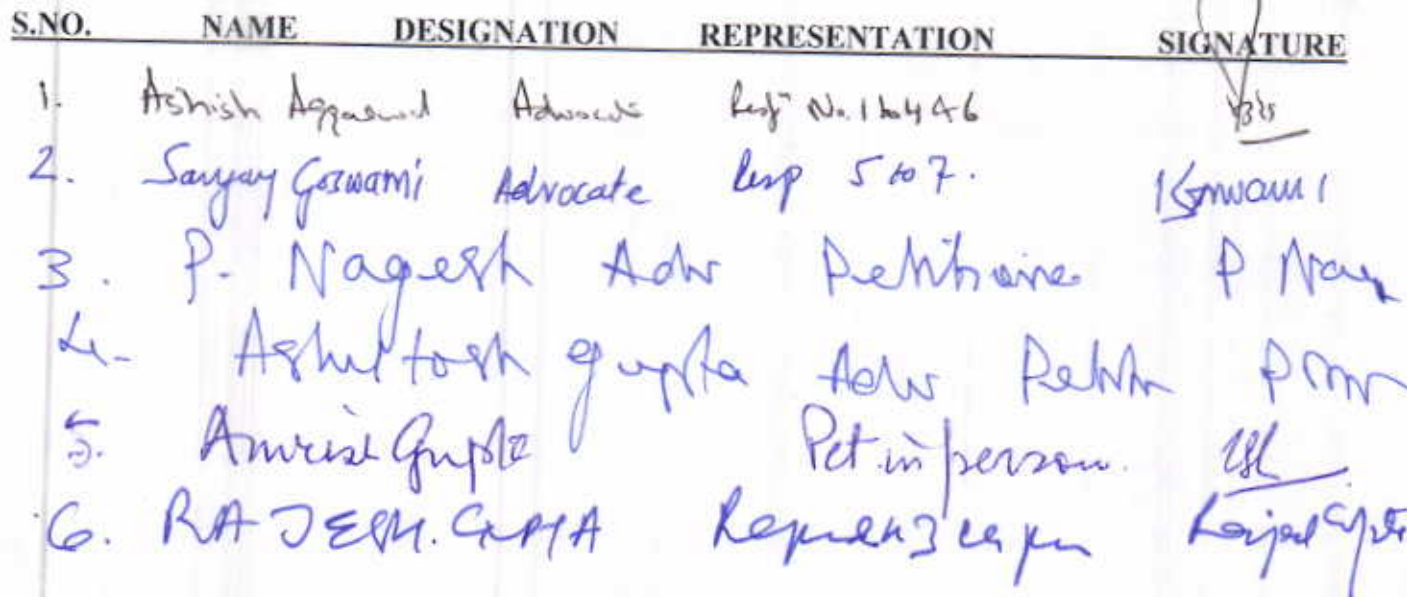 S.NO. NAME DESIGNATION REPRESENTATION SIGNATURE
1. Ashish Aggarwal Advocate Resp No. 1 to 4 & 6
2. Sanjay Goswami Advocate Resp 5 to 7. Goswami
3. P. Nagesh Adv Petitioner P Nag
4. Ashutosh Gupta Adv
5. Amrise Gupta Pet. in person.
6. RAJESH. GUPTA Rajesh Gupta